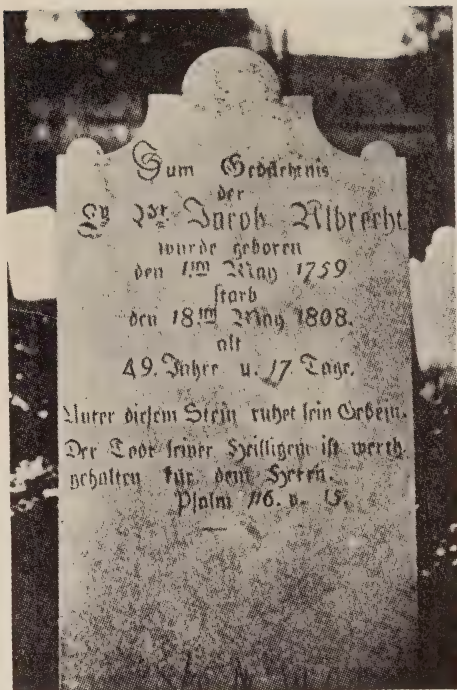 Zum Gedächtnis
der
Ev Pr Jacob Albrecht
wurde geboren
den 1ten May 1759
starb
den 18ten May 1808.
alt
49. Jahre u. 17 Tage.
Unter diesem Stein ruhet sein Gebein.
Der Todt seiner Heilligen ist werth
gehalten für dem Herrn.
Psalm 116. v. 15.